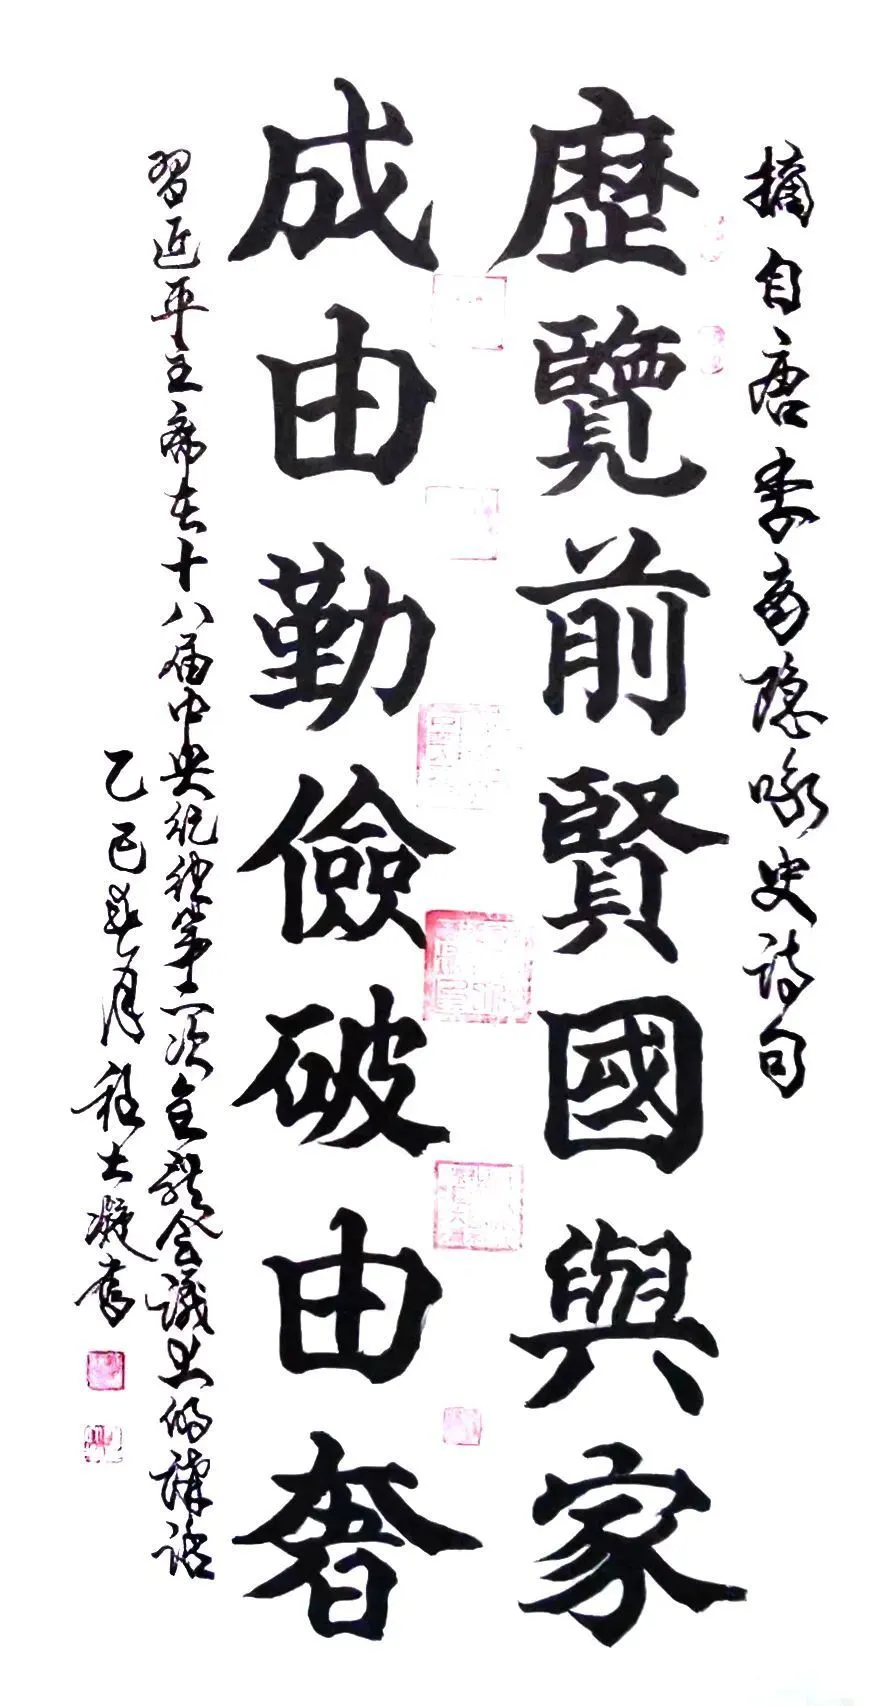 摘自唐李商隐咏史诗句
歷覽前賢國與家
成由勤儉破由奢
習近平主席在十八届中央纪律第二次全體会議上的講話
乙巳春月程士凝書